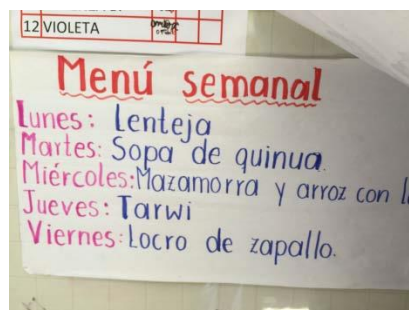 12 VIOLETA
Menú semanal
Lunes: Lenteja
Martes: Sopa de quinua.
Miércoles: Mazamorra y arroz con
Jueves: Tarwi
Viernes: Locro de zapallo.